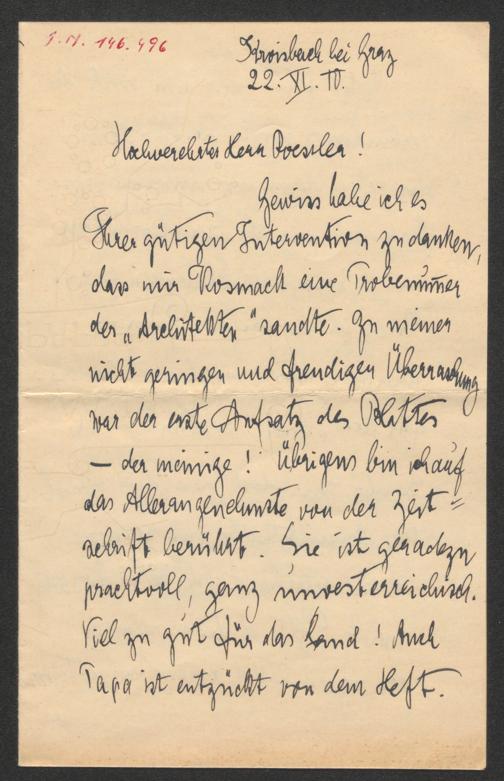 J.N. 146.496
Kroisbach bei Graz
22. XI. 10.
Hochverehrter Herr Roessler!
Gewiss habe ich es
Ihrer gütigen Intervention zu danken,
dass mir Kosmack eine Probenum̄er
der „Architekten" sandte. Zu meiner
nicht geringen und freudigen Überraschung
war der erste Aufsatz des Blattes
— der meinige! Übrigens bin ich auf
das Allerangenehmste von der Zeit=
schrift berührt. Sie ist geradezu
prachtvoll, ganz unoesterreichisch.
Viel zu gut für das Land! Auch
Papa ist entzückt von dem Heft.